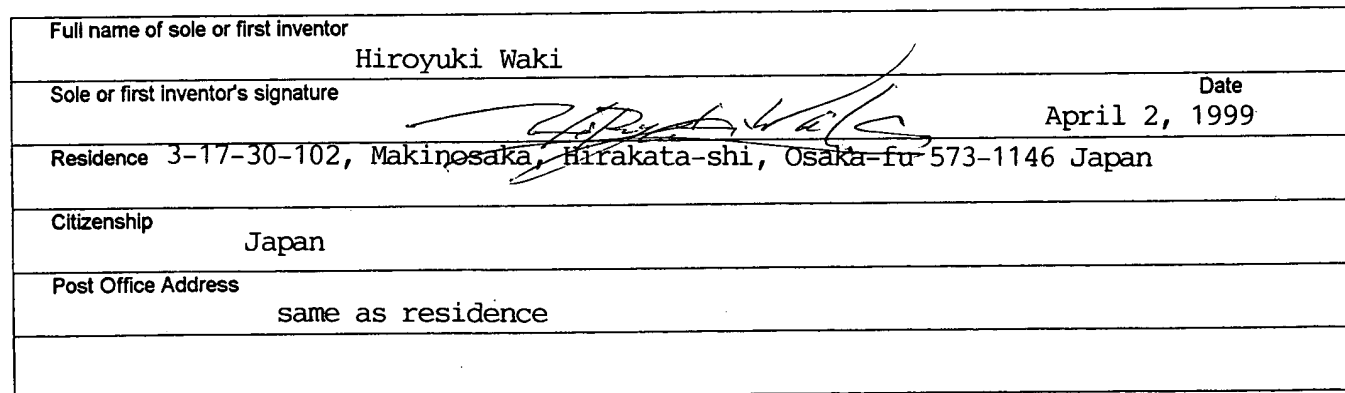 Full name of sole or first inventor
Hiroyuki Waki
Sole or first inventor's signature
Hiroyuki Waki
Date
April 2, 1999
Residence 3-17-30-102, Makinosaka, Hirakata-shi, Osaka-fu 573-1146 Japan
Citizenship
Japan
Post Office Address
same as residence